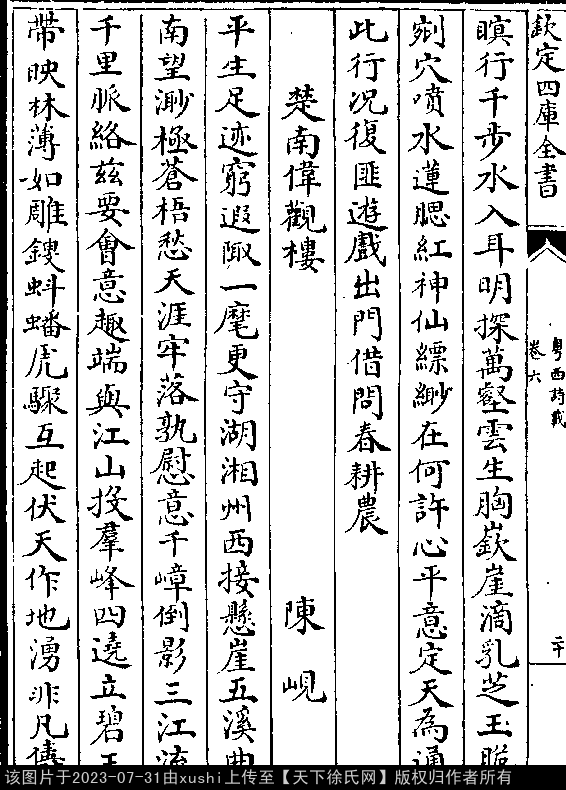 欽定四庫全書
粤西詩載
卷六
二十
瞑行千步水入耳明探萬壑雲生胸嶔崖滴乳芝玉
剜穴噴水蓮腮紅神仙縹緲在何許心平意定天為通
此行況復匪遊戲出門借問春耕農
楚南偉觀樓 陳峴
平生足迹窮遐陬一麾更守湖湘州西接懸崖五溪曲
南望渺極蒼梧愁天涯牢落孰慰意千嶂倒影三江流
千里脈絡兹要會意趣端與江山投羣峰四遶立碧玉
帶映林薄如雕鎪蚪蟠虎驟互起伏天作地湧非凡儔
该图片于2023-07-31由xushi上传至【天下徐氏网】版权归作者所有